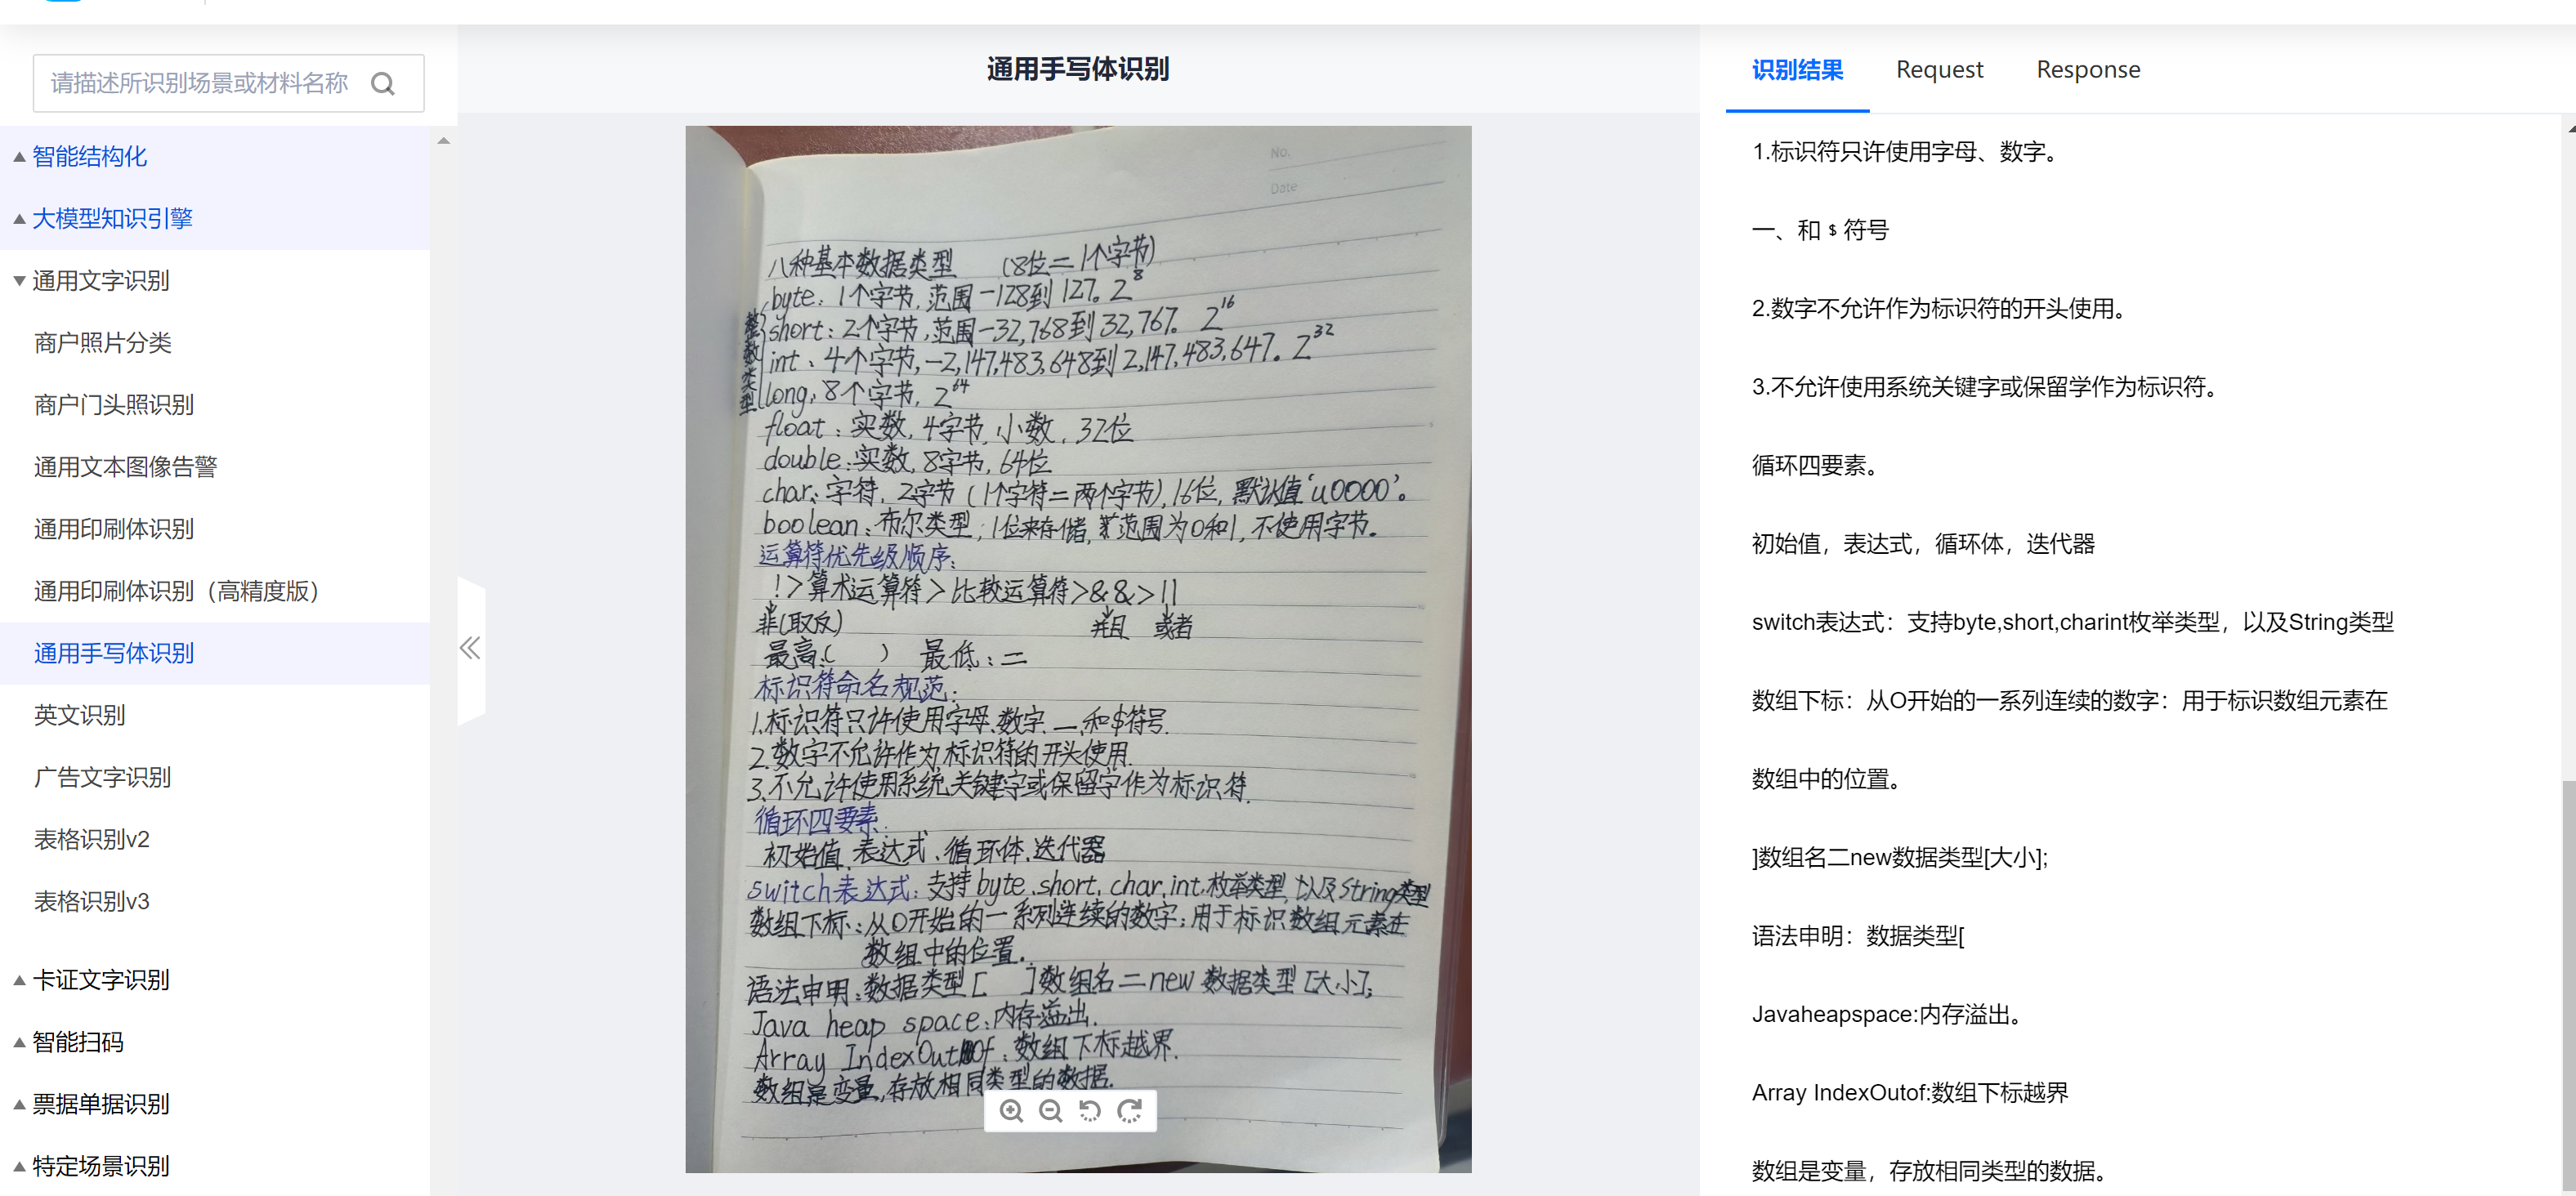 请描述所识别场景或材料名称
智能结构化
大模型知识引擎
通用文字识别
商户照片分类
商户门头照识别
通用文本图像告警
通用印刷体识别
通用印刷体识别（高精度版）
通用手写体识别
英文识别
广告文字识别
表格识别v2
表格识别v3
卡证文字识别
智能扫码
票据单据识别
特定场景识别
通用手写体识别
No.
Date
八种基本数据类型 (8位=1个字节)
整数类型
byte: 1个字节,范围-128到127。2^8
short: 2个字节,范围-32,768到32,767。 2^16
int: 4个字节,-2,147,483,648到2,147,483,647。2^32
long: 8个字节, 2^64
float: 实数, 4字节, 小数, 32位
double: 实数, 8字节, 64位
char: 字符, 2字节 (1个字符=两个字节), 16位, 默认值'u0000'。
boolean: 布尔类型, 1位来存储, 范围为0和1, 不使用字节。
运算符优先级顺序:
!>算术运算符>比较运算符>&&>||
非(取反) 并且 或者
最高:( ) 最低:=
标识符命名规范:
1.标识符只许使用字母、数字、_、和$符号.
2.数字不允许作为标识符的开头使用.
3.不允许使用系统关键字或保留字作为标识符.
循环四要素:
初始值、表达式、循环体、迭代器
switch表达式: 支持byte,short,char,int,枚举类型,以及String类型
数组下标: 从0开始的一系列连续的数字;用于标识数组元素在
数组中的位置.
语法申明:数据类型[ ]数组名=new 数据类型[大小];
Java heap space:内存溢出.
Array IndexOutOf:数组下标越界.
数组是变量,存放相同类型的数据.
识别结果 Request Response
1.标识符只许使用字母、数字。
一、和﹩符号
2.数字不允许作为标识符的开头使用。
3.不允许使用系统关键字或保留学作为标识符。
循环四要素。
初始值，表达式，循环体，迭代器
switch表达式：支持byte,short,charint枚举类型，以及String类型
数组下标：从O开始的一系列连续的数字：用于标识数组元素在
数组中的位置。
]数组名二new数据类型[大小];
语法申明：数据类型[
Javaheapspace:内存溢出。
Array IndexOutof:数组下标越界
数组是变量，存放相同类型的数据。